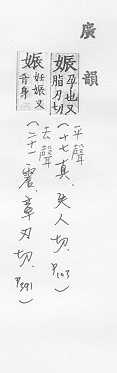 廣韻
娠 孕也又
脂刃切
平聲
(十七真、失人切、P103)
娠 妊娠又
音身
去聲
(二十一震、章刃切、P391)